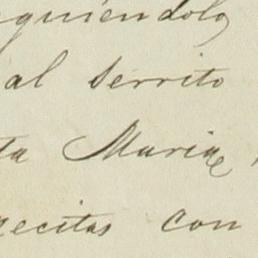 guiéndolo
al Serrito
ta Maria
recitas con